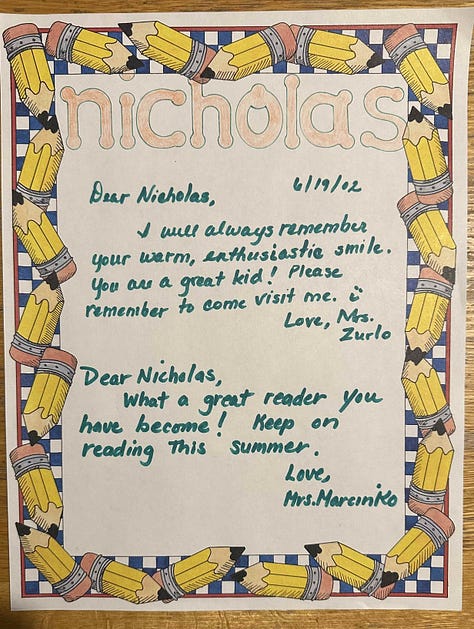 nicholas
Dear Nicholas, 6/19/02
I will always remember
your warm, enthusiastic smile.
You are a great kid! Please
remember to come visit me.
Love, Mrs.
Zurlo
Dear Nicholas,
What a great reader you
have become! Keep on
reading This summer.
Love,
Mrs. Marciniko